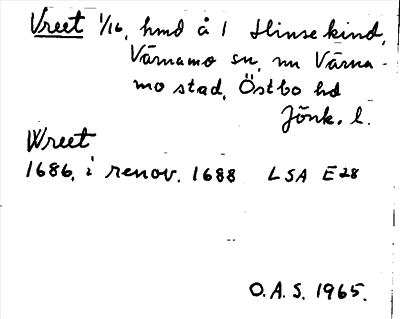 Vreet 1/16, hmd å 1 Hinsekind,
Värnamo sn, nu Värna-
mo stad, Östbo hd
Jönk. l.
Wreet
1686, i renov. 1688 LSA E28
O.A.S. 1965.